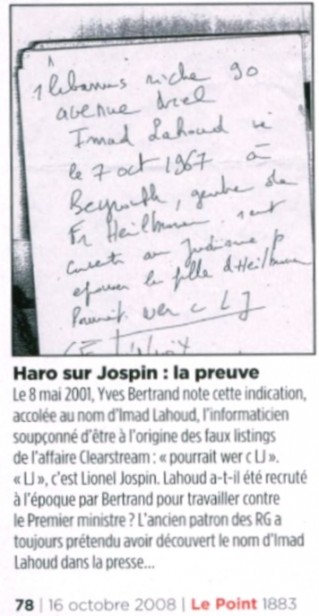 1 libanais riche 90
avenue
Imad Lahoud né
le 7 oct 1967 à
Beyrouth, gendre de
Fr Heilbronn
au judaïsme p
épouser la fille d'Heilbronn
Pourrait wer c LJ
Haro sur Jospin : la preuve
Le 8 mai 2001, Yves Bertrand note cette indication,
accolée au nom d'Imad Lahoud, l'informaticien
soupçonné d'être à l'origine des faux listings
de l'affaire Clearstream : « pourrait wer c LJ ».
« LJ », c'est Lionel Jospin. Lahoud a-t-il été recruté
à l'époque par Bertrand pour travailler contre
le Premier ministre ? L'ancien patron des RG a
toujours prétendu avoir découvert le nom d'Imad
Lahoud dans la presse...
78 | 16 octobre 2008 | Le Point 1883